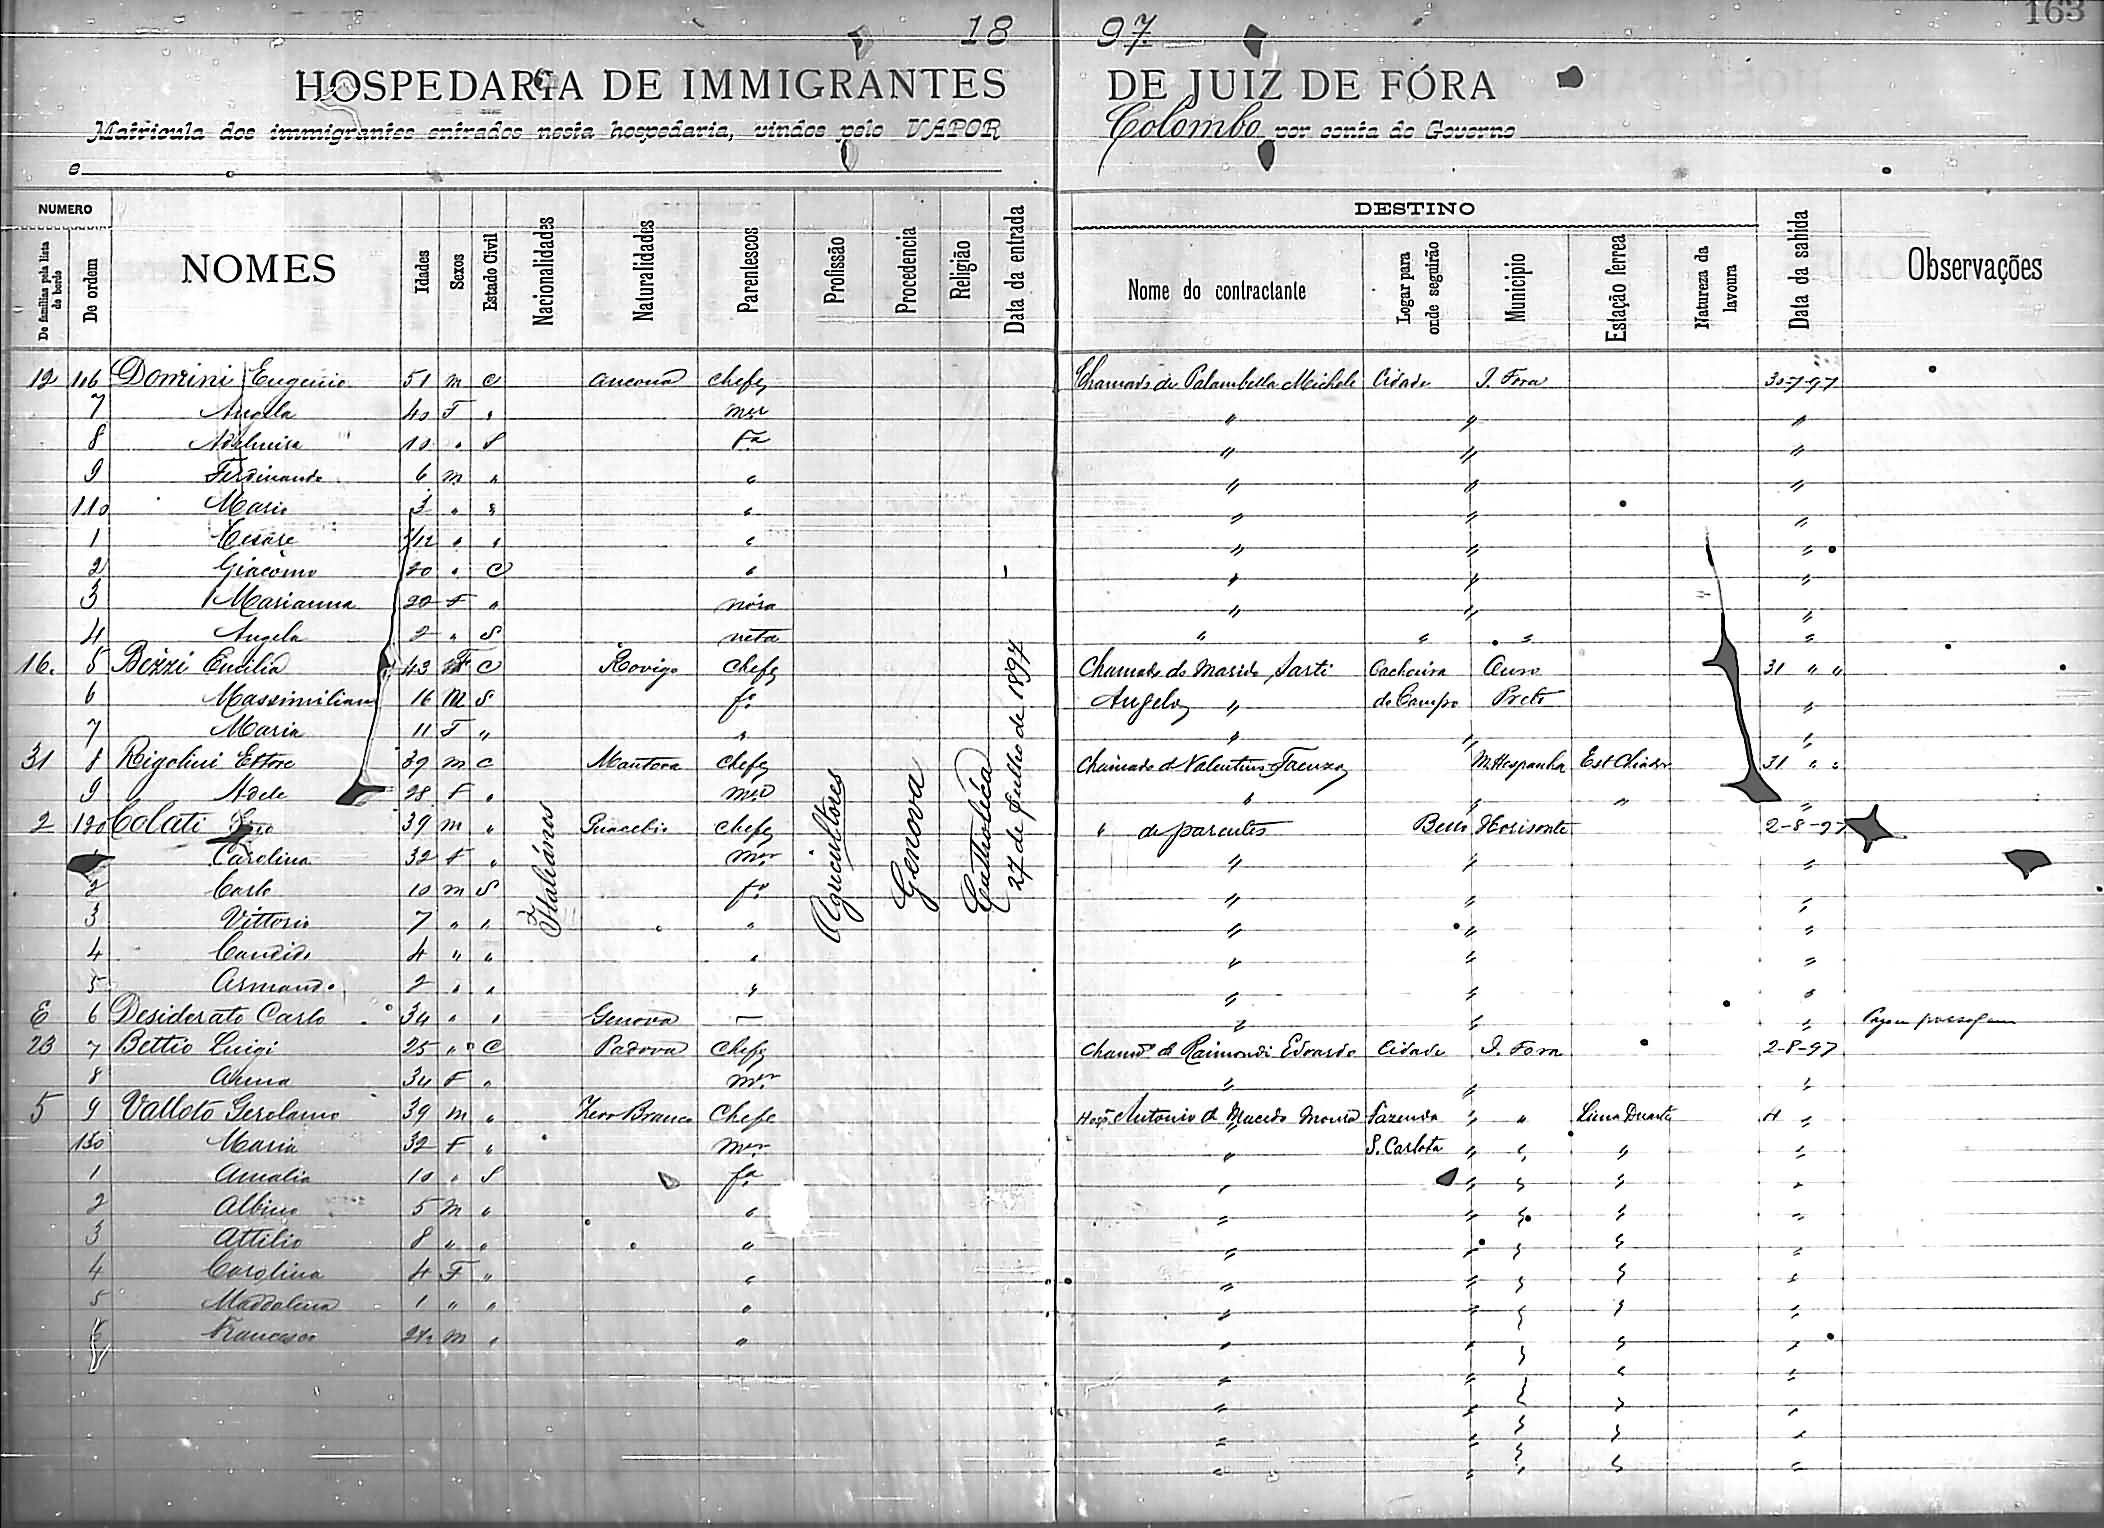 163
18 97
HOSPEDARIA DE IMMIGRANTES DE JUIZ DE FÓRA
Matricula dos immigrantes entrados nesta hospedaria, vindos pelo VAPOR Colombo por conta do Governo
e
NUMERO
De familias pela lista do bordo
De ordem
NOMES
Idades
Sexos
Estado Civil
Nacionalidades
Naturalidades
Parentescos
Profissão
Procedencia
Religião
Data da entrada
DESTINO
Nome do contractante
Logar para onde seguirão
Municipio
Estação ferrea
Natureza da lavoura
Data da sahida
Observações
12 106 Domini Eugenio 51 m C Ancona Chefe Chamado de Palambella Michele Cidade J. Fora 30-7-97
7 Angela 40 F " mer " " "
8 10 " S Fa " " "
9 Ferdinando 6 m " " " " "
110 Mario 3 " " " " " "
1 Cesare /12 " " " " " "
2 Giacomo 20 " C " " " "
3 Marianna 20 F " nóra " " "
4 Angela 2 " S neta " " " "
16. 5 Bezzi Emilia 43 F C Rovigo Chefe Chamado do Marido Sarti Cachoeira Ouro 31 " "
6 Massimiliano 16 M S fo Angelo " do Campo Preto "
7 Maria 11 F " " " " "
31 8 Rigolini Ettore 39 m C Mantova Chefe Chamado d Valentino Faenza M. Hespanha Est 31 " "
9 Adele 28 F " mer " " " "
2 120 Colati 39 m " Chefe " de parentes Bello Horisonte 2-8-97
Carolina 32 F " mer " " "
2 Carlo 10 m S fo " " "
3 Vittorio 7 " " " " " "
4 Candido 4 " " " " " "
5 Armando 2 " " " " " "
E 6 Desiderato Carlo 34 " " Genova — " " "
23 7 Bettio Luigi 25 " C Padova Chefe Chamo de Raimondi Edoardo Cidade J. Fora 2-8-97
8 Anna 34 F " mer " " "
5 9 Valloto Gerolamo 39 m " Zero Branco Chefe Antonio d Macedo Moura Fazenda " " Lima Duarte 4 "
130 Maria 32 F " mer " S. Carlota " " " "
1 Amalia 10 " S fa " " " " "
2 Albino 5 m " " " " " " "
3 Attilio 8 " " " " " " " "
4 Carolina 4 F " " " " " " "
5 Maddalena 1 " " " " " " " "
6 Francesco m " " " " " " "
Italiános
Agricultores
Genova
Catholica
27 de Julho de 1897